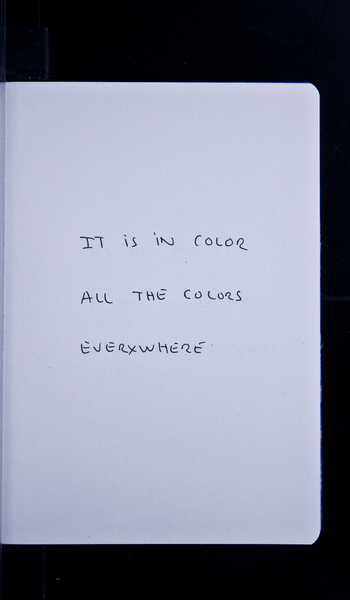 IT iS iN COLOR
ALL THE COLORS
EVERYWHERE